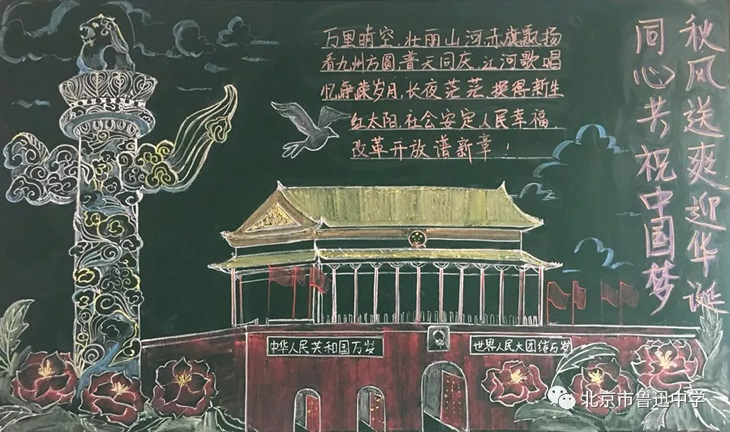 秋风送爽迎华诞
同心共祝中国梦
万里晴空，壮丽山河，赤旗飘扬
看九州方圆，普天同庆，江河歌唱
忆峥嵘岁月，长夜茫茫，换得新生
红太阳，社会安定，人民幸福，
改革开放谱新章！
中华人民共和国万岁
世界人民大团结万岁
北京市鲁迅中学